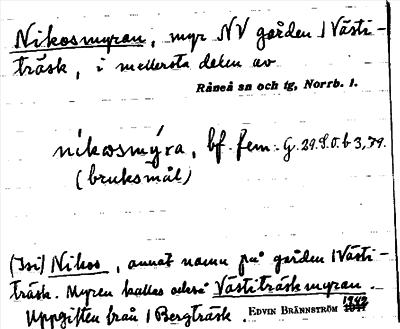 Nikosmyran, myr NV gården 1 Västi-
träsk, i mellersta delen av
Råneå sn och tg, Norrb. l.
nikosmýra, bf. fem. G. 29. S.O. b 3, 79.
(bruksmål)
Nikos, annat namn på gården 1 Västi-
träsk. Myren kallas också Västiträskmyran.
Uppgiften från 1 Bergträsk. EDVIN BRÄNNSTRÖM 1942